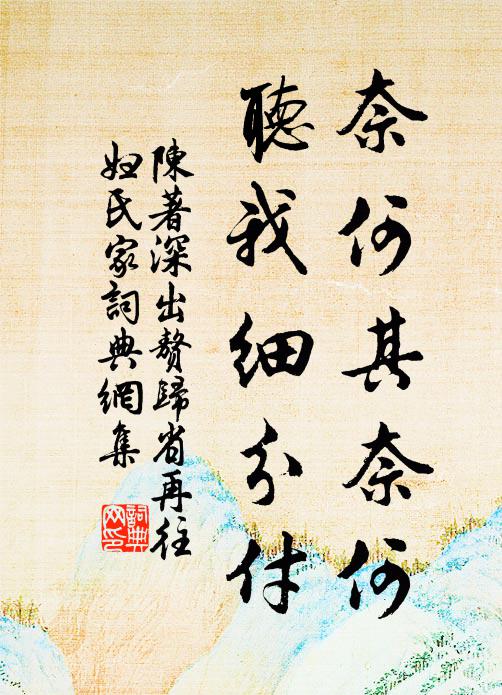 奈何其奈何
聽我細分付
陳著深出贅歸省再往
妞氏家詞典網集
詞典網印